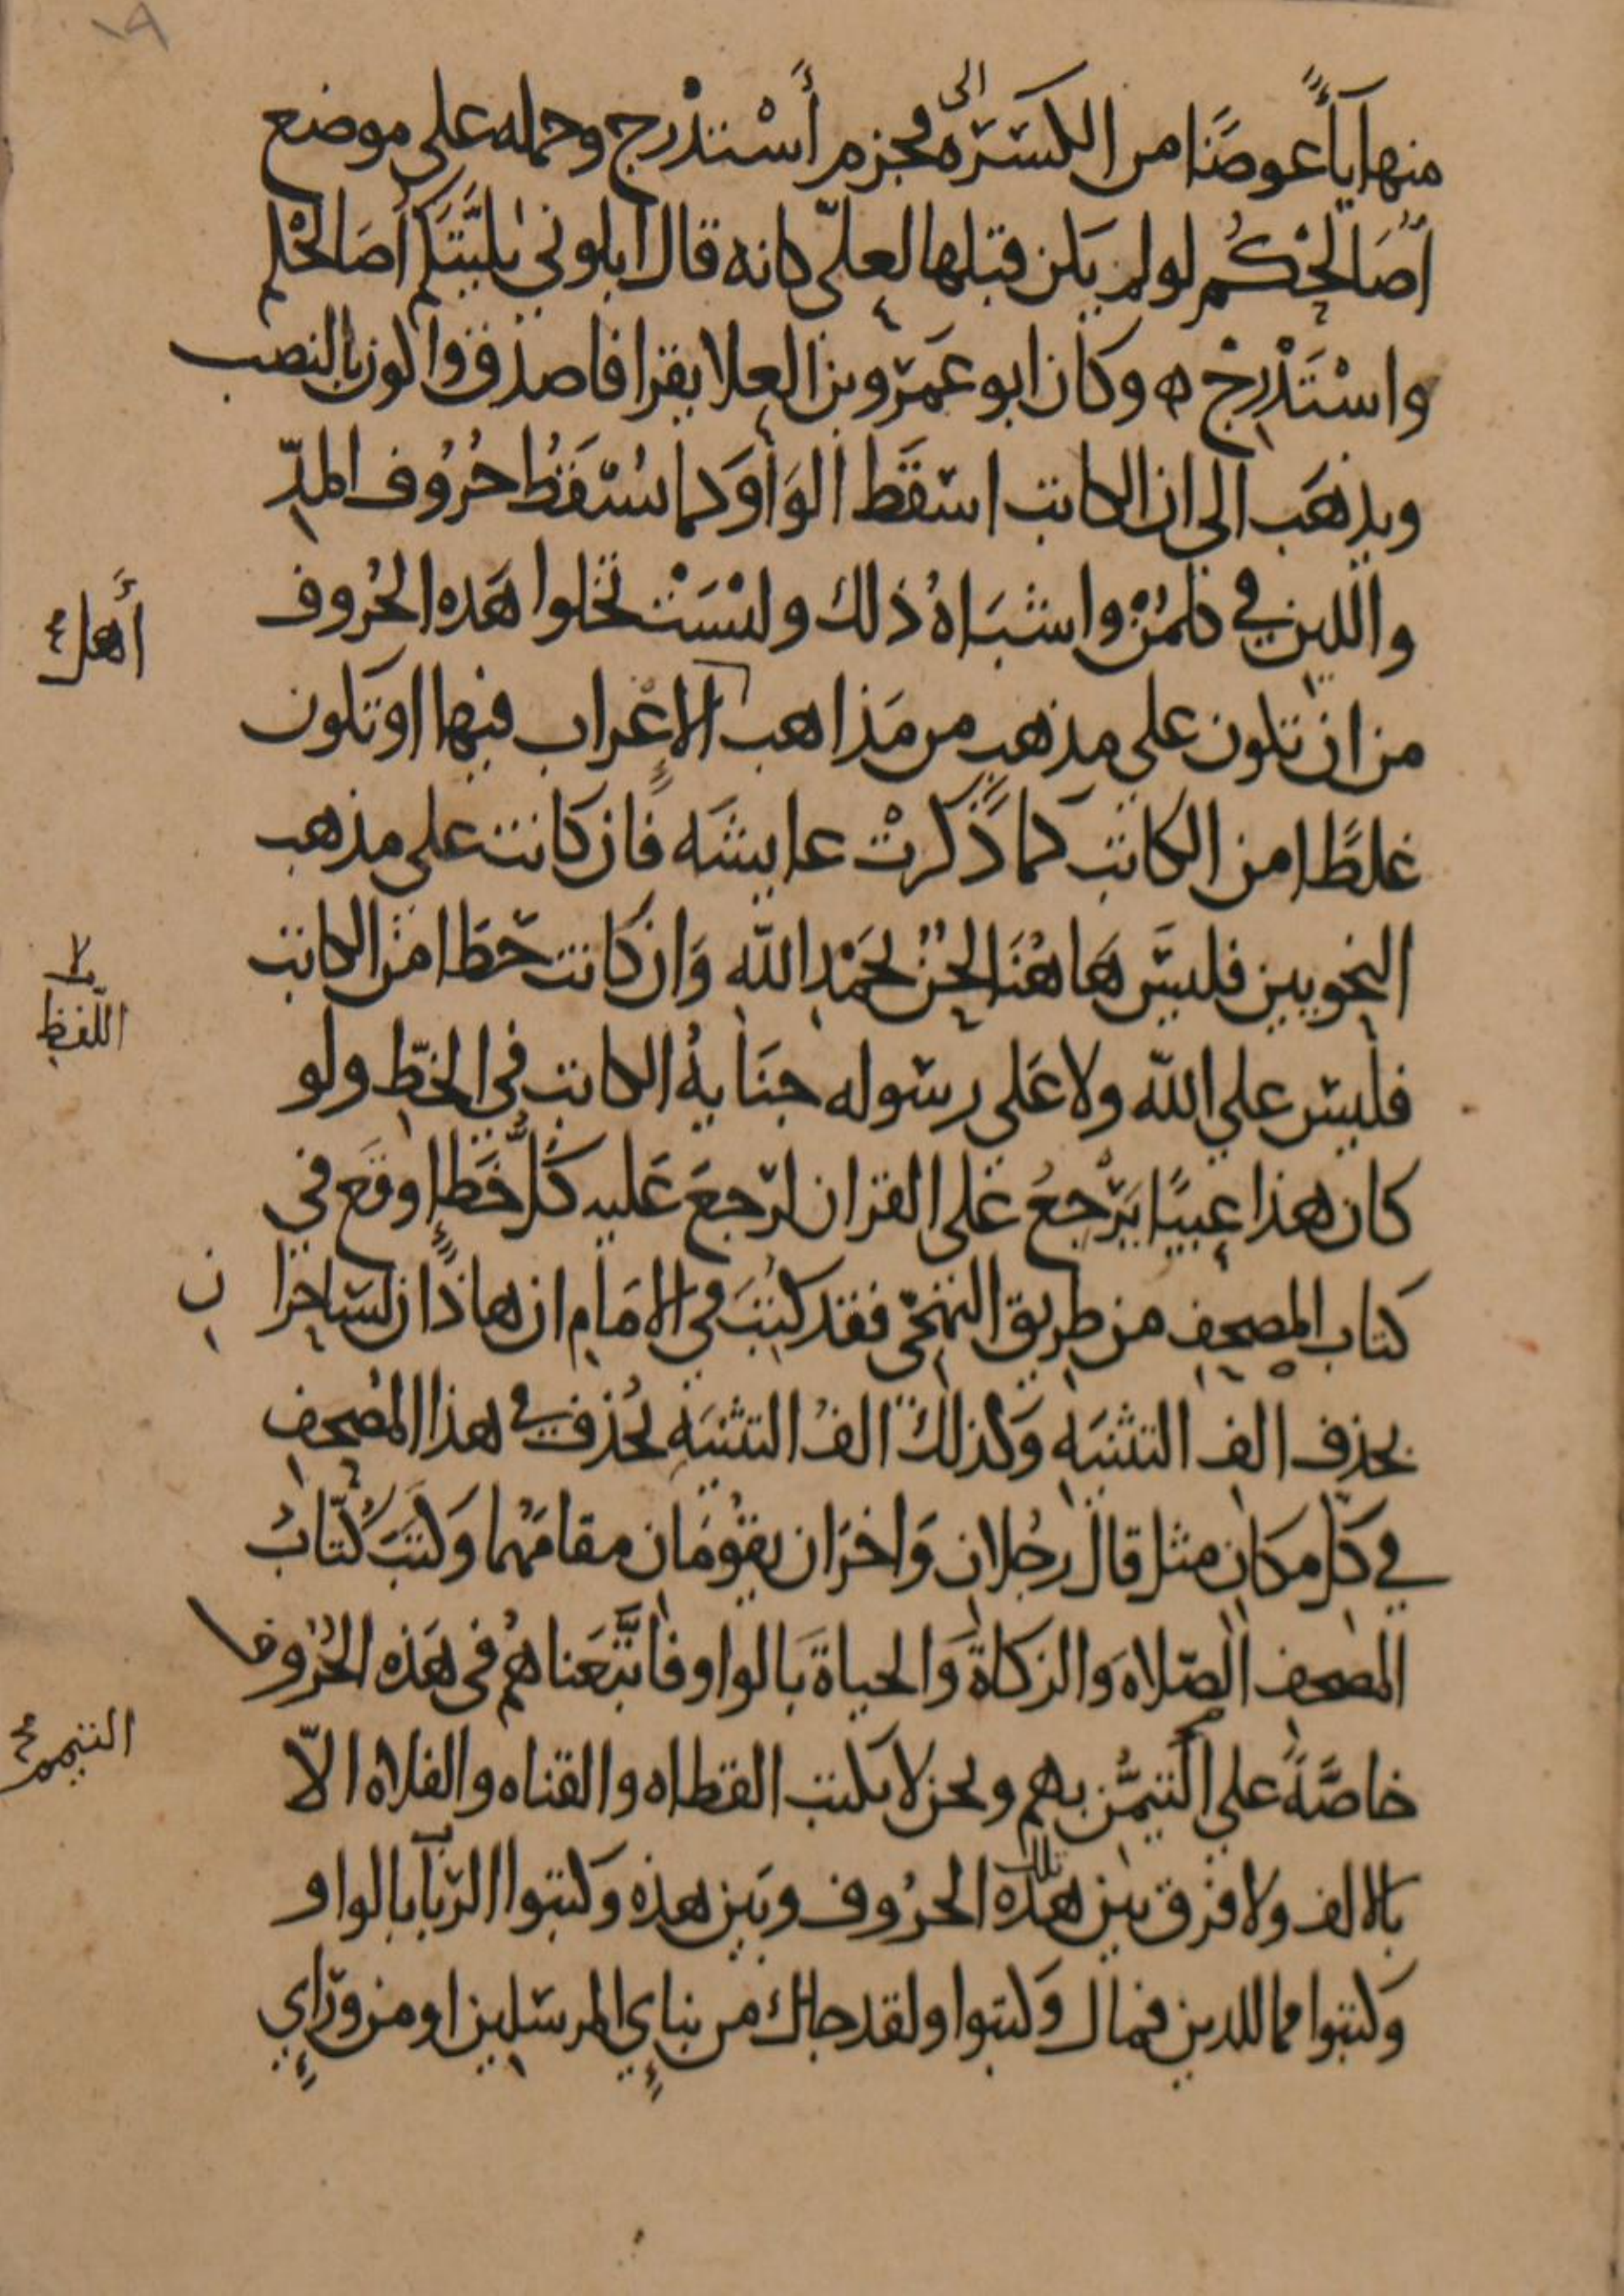 ١٩
منها يآءً عوضًا من الكسَرة الى فجزم أَسْتدْرج وحمله على موضع
أُصَالحْكُم لو لم يكن قبلها لعلّي كانه قال ابلوني بليَّتكم أُصَالحْكم
واسْتَدْرِجْ ه وكان ابو عَمرو بن العلا يقرا فاصدق واكون بالنصب
ويذهَب الى ان الكاتب اسقَط الوَاوَ كما تُسْقَطُ حُرُوف المدّ
واللين في كلمُنْ واشبَاهُ ذلك وليْسَتْ تخلوا هَذه الحُروف
من ان تكون على مذهبٍ من مَذاهب الإعْراب فيها او تكون
أَهل
غلطًا من الكاتب كما ذَكرتْ عايشَه فان كانت على مذهب
النحويين فليسَ هَاهُنَا لحنٌ بحَمْدِ الله وَان كانت خطَا من الكاتب
فليس على الله ولا عَلى رسوله جنَايةُ الكاتب في الخطّ ولو
اللّفظ
كان هذا عيبًا يَرْجعُ على القران لرَجعَ عَليه كلُّ خَطإٍ وقَع في
كتاب المصحف من طريق التهجّي فقد كُتبَ في الامَام ان هاذان لسَاحرا
ن
بحذف الف التثنيَه وَكذلك الفُ التثنيَه تُحْذف في هذا المُصْحف
في كل مكان مثل قال رجُلان وَاخرَان يقُومَان مقامَهُما وَكتبَ كُتّابُ
المصحف الصّلاه وَالزكاةَ وَالحياةَ بَالواو فاتَّبَعناهُم في هَذه الحُرُوف
خاصَّةً على التيمُّن بهم ونحن لا نكتب القطاه والقناه والفلاه الاّ
التيمم
بالالف ولا فرْق بين هذه تلك الحرُوف وبَين هذه وكتبوا الرّبَا بالواو
وَكتبوا فما للدين فمال وكتبوا ولقد جاك من نبإي المرسَلين او من ورَآإي